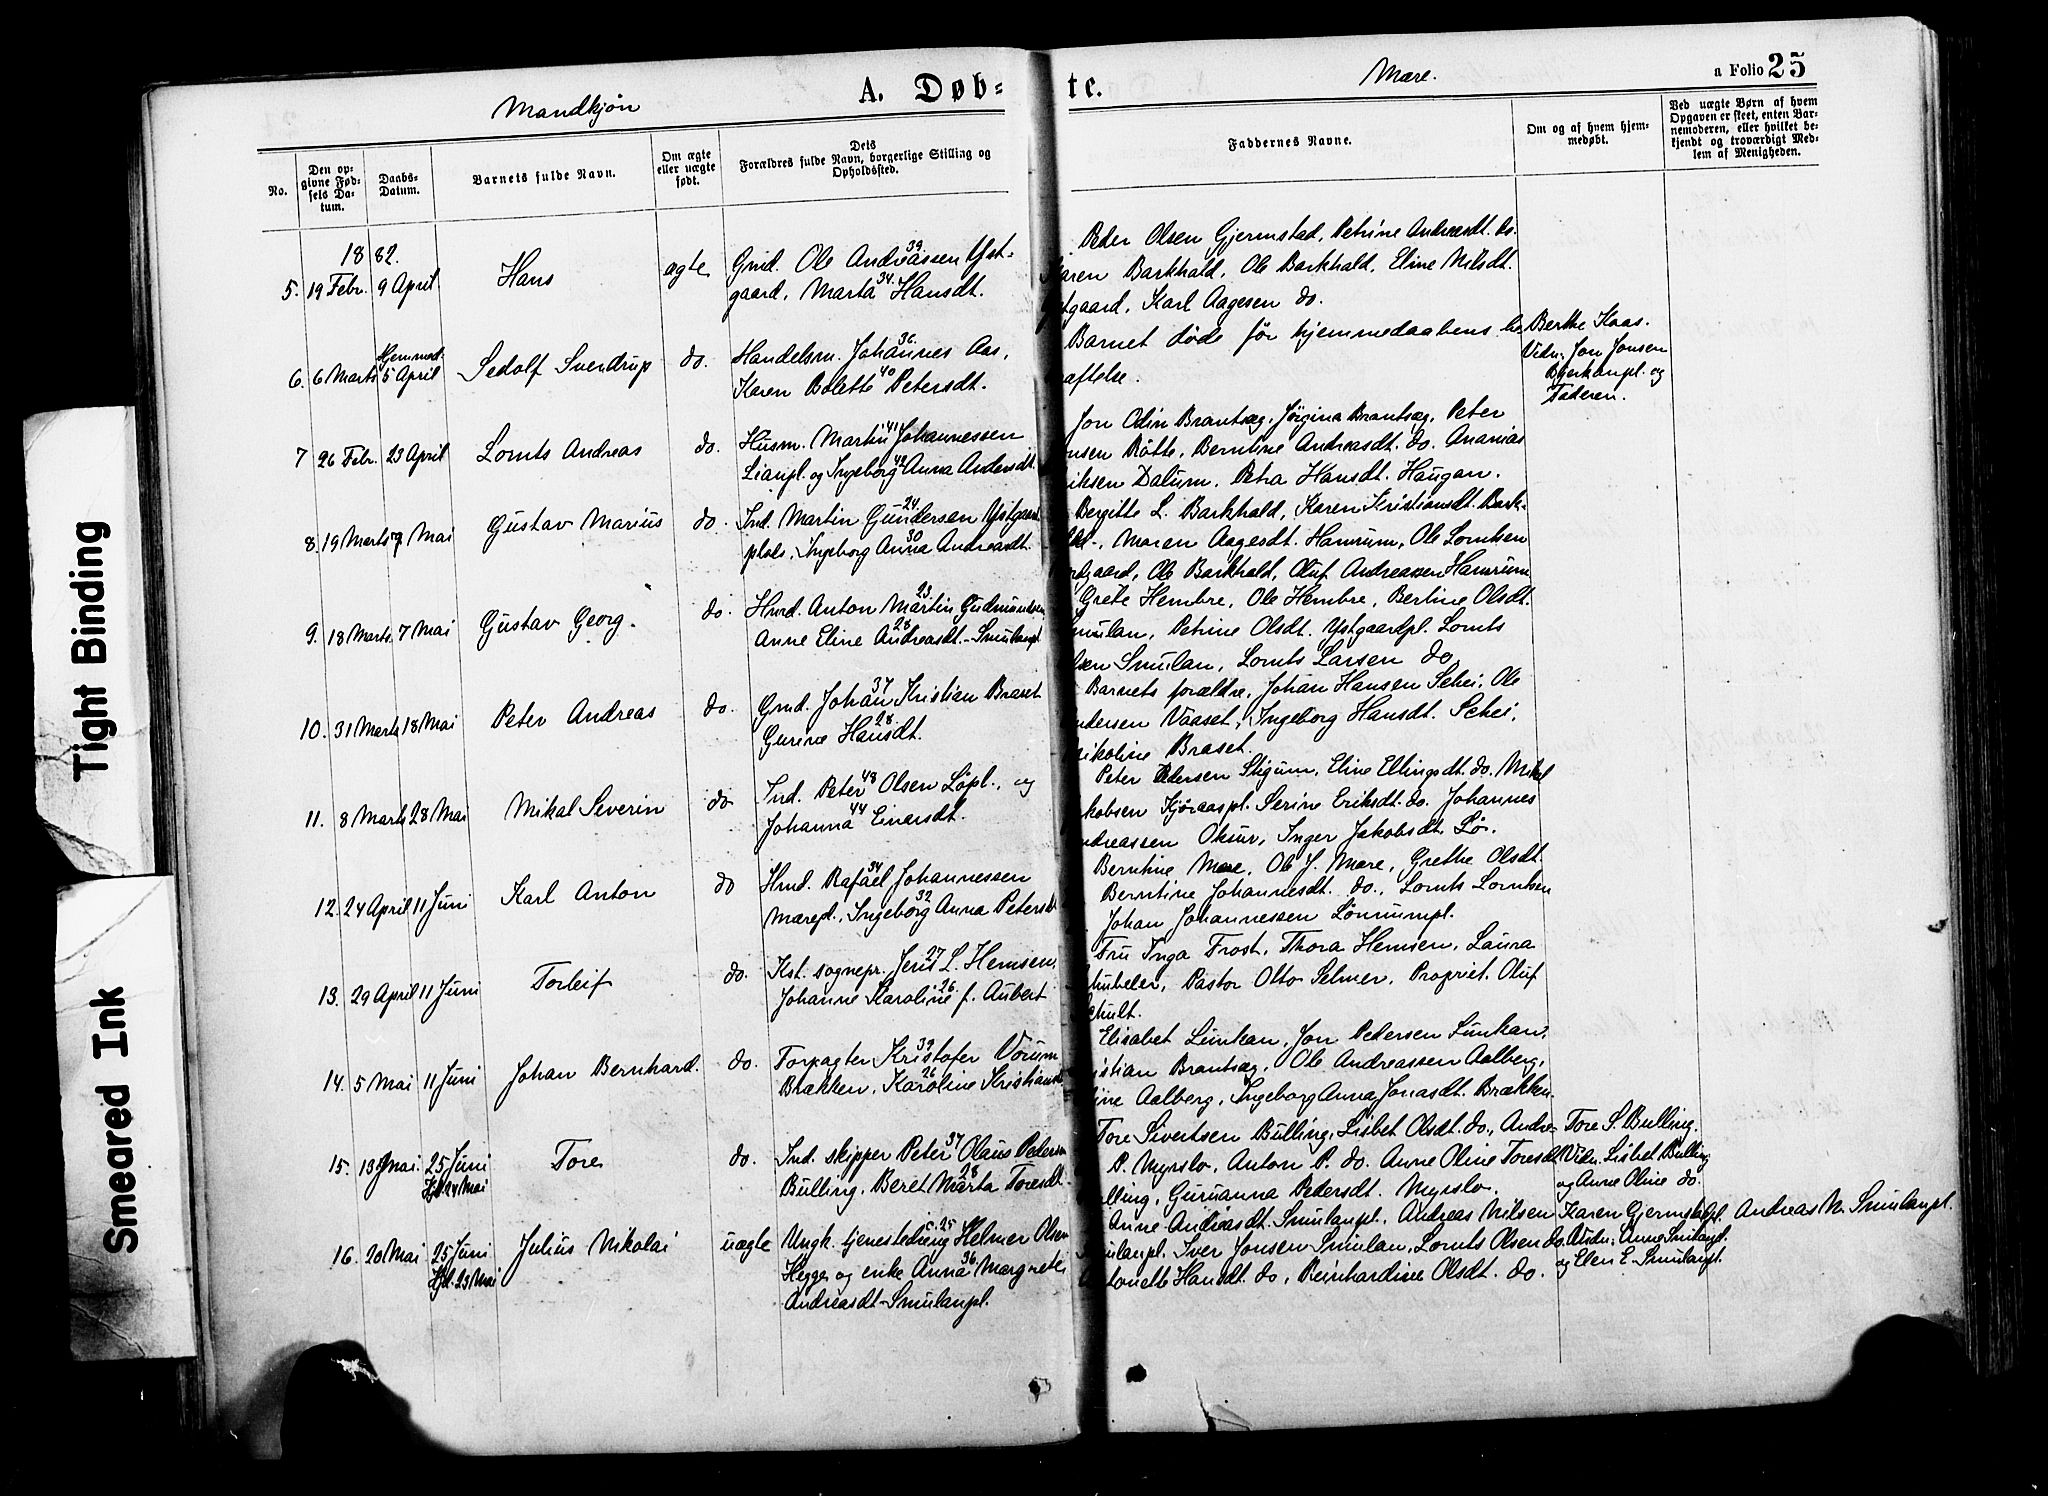 Mandkjøn
A. Døb-
te.
Mære.
a Folio 25
No.
Den op-
givne Fød-
sels Da-
tum.
Daabs-
Datum.
Barnets fulde Navn.
Om ægte
eller uægte
født.
Dets
Forældres fulde Navn, borgerlige Stilling og
Opholdssted.
Faddernes Navne.
Om og af hvem hjem-
medøbt.
Ved uægte Børn af hvem
Opgaven er skeet, enten Bar-
nemoderen, eller hvilket be-
kjendt og troværdigt Med-
lem af Menigheden.
1882.
5. 19 Febr. 9 April Hans ægte
Grd. Ole Andreassen Yst- 39
gaard, Marta Hansdt. 34
Peder Olsen Gjermstad, Petrine Andreasdt. do.
Karen Barkhald, Ole Barkhald, Eline Nilsdt.
Ystgaard, Karl Aagesen do.
6. 6 Marts Hjemmed. 5 April Sedolf Sverdrup do.
Handelsm. Johannes Aas, 36
Karen Bolette Petersdt. 40
Barnet døde før hjemmedaabens be
æftelse.
Berthe Kaas.
Vidn: Jon Jonsen
Bjerkanpl. og
Faderen.
7 26 Febr. 23 April Lornts Andreas do.
Husm. Martin Johannessen 41
Lianpl. og Ingeborg Anna Andersdt. 42
Jon Odin Brantsæg, Jørgina Brantsæg, Peter
ensen Røtte, Berntine Andreasdt. do. Ananias
iksen Dalum, Petra Hansdt. Haugan.
8. 19 Marts 7 Mai Gustav Marius do.
Ind. Martin Gundersen Ystgaard 24
plads, Ingeborg Anna Andreasdt. 30
Bergitte L. Barkhald, Karen Kristiansdt. Bark-
hld., Maren Aagesdt. Hamrum, Ole Lorntsen
Ystgaard, Ole Barkhald, Oluf Andreassen Hamrum
9. 18 Marts 7 Mai Gustav Georg. do.
Hmd. Anton Martin Gudmundsen 23
Anne Eline Andreasdt. Smulanpl. 28
Grete Hembre, Ole Hembre, Bertine Olsdt.
Smulan, Petrine Olsdt. Ystgaardpl. Lornts
Olsen Smulan, Lornts Larsen do
10. 31 Marts 18 Mai Peter Andreas do.
Grd. Johan Kristian Braset 37
Gurine Hansdt. 28
Barnets forældre, Johan Hansen Schei, Ole
Andersen Vaaset, Ingeborg Hansdt. Schei,
Nikoline Braset.
11. 8 Marts 28 Mai Mikal Severin do
Ind. Peter Olsen Løpl., og 48
Johanna Einarsdt. 44
Peter Pedersen Stigum, Eline Ellingsdt. do. Mikal
Jakobsen Kjøraaspl. Serine Eriksdt. do. Johannes
Andreassen Oksur, Inger Jakobsdt. Lø.
12. 24 April 11 Juni Karl Anton do
Hmd. Rafael Johannessen 34
Mærepl., Ingeborg Anna Petersdt 32
Berntine Mære, Ole J. Mære, Grethe Olsdt.
Berntine Johannesdt. do., Lornts Lorntsen
Johan Johannessen Lømumpl.
13. 29 April 11 Juni Torleif do.
Kst. sognepr. Jens L. Hemsen, 27
Johanne Karoline f. Aubert 26
Fru Inga Frost, Thora Hemsen, Laura
Schubeler, Pastor Otto Selmer, Propriet. Oluf
Schult.
14. 5 Mai 11 Juni Johan Bernhard. do.
Forpagter Kristofer Vorum 39
Brækken, Karoline Kristiansdt 26
Elisabet Lunkan, Jon Pedersen Lunkan,
istian Brantsæg, Ole Andreassen Aalberg,
line Aalberg, Ingeborg Anna Jonasdt. Brækken.
15. 13 Mai 25 Juni Hjd. 24 Mai Tore do.
Ind. skipper Peter Olaus Pedersen 37
Bulling, Beret Marta Toresdt. 28
Tore Sivertsen Bulling, Lisbet Olsdt. do., Andre-
P. Myrslo, Anton P. do. Anne Oline Toresdt
Bulling, Gurianna Pedersdt. Myrslo.
Tore S. Bulling.
Vidn. Lisbet Bulling
og Anne Oline do.
16. 20 Mai 25 Juni Hjd. 23 Mai Julius Nikolai uægte
Ungk. tjenestedreng Helmer Olsen 25
Hegge og enke Anna Margrete 36
Andreasdt. Smulanpl.
Anne Andreasdt. Smulanpl., Andreas Nilsen
Smulanpl. Iver Jonsen Smulan, Lornts Olsen do.
Antonette Hansdt. do, Reinhardine Olsdt. do.
Karen Gjermstadpl.
Vidn: Anne Smulanpl.
og Elen E. Smulanpl.
Andreas N. Smulanpl.
Tight Binding
Smeared Ink